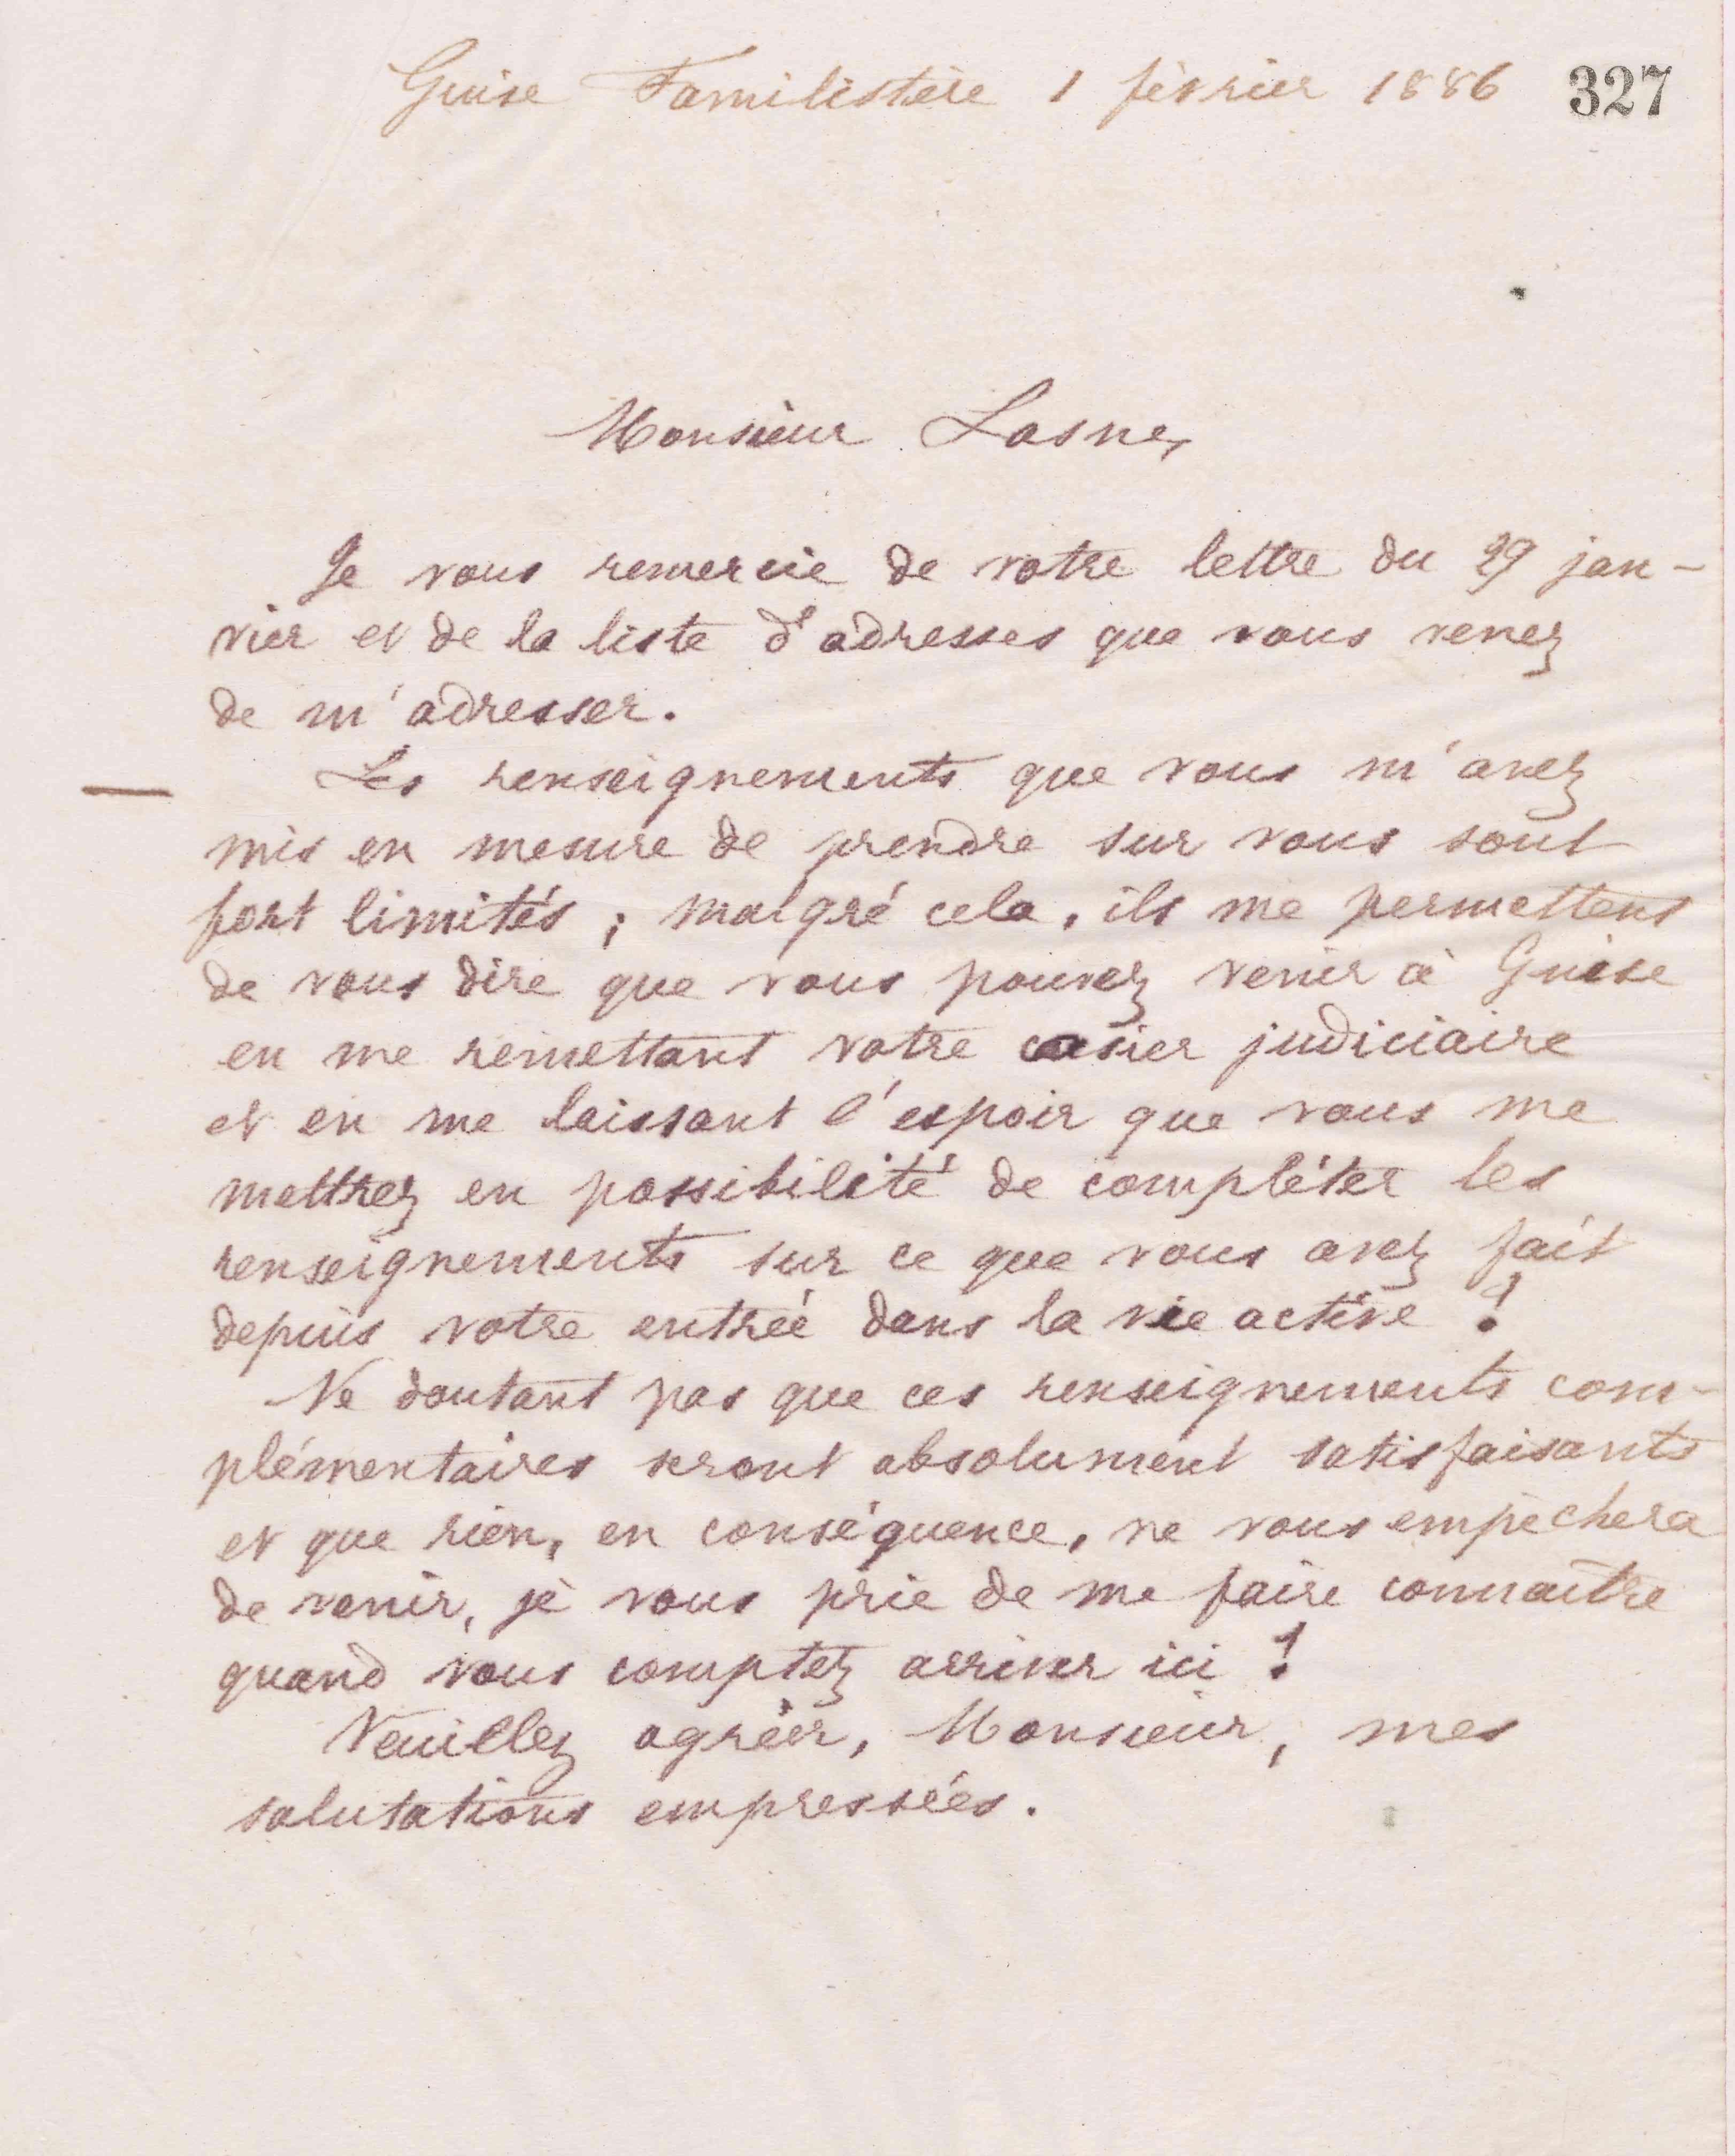 Guise Familistère 1 février 1886 327
Monsieur Lasne,
Je vous remercie de votre lettre du 29 jan-
vier et de la liste d'adresses que vous venez
de m'adresser.
Les renseignements que vous m'avez
mis en mesure de prendre sur vous sont
fort limités ; malgré cela, ils me permettent
de vous dire que vous pouvez venir à Guise
en me remettant votre casier judiciaire
et en me laissant l'espoir que vous me
mettrez en possibilité de compléter les
renseignements sur ce que vous avez fait
depuis votre entrée dans la vie active !
Ne doutant pas que ces renseignements com-
plémentaires seront absolument satisfaisants
et que rien, en conséquence, ne vous empêchera
de venir, je vous prie de me faire connaître
quand vous comptez arriver ici !
Veuillez agréer, Monsieur, mes
salutations empressées.